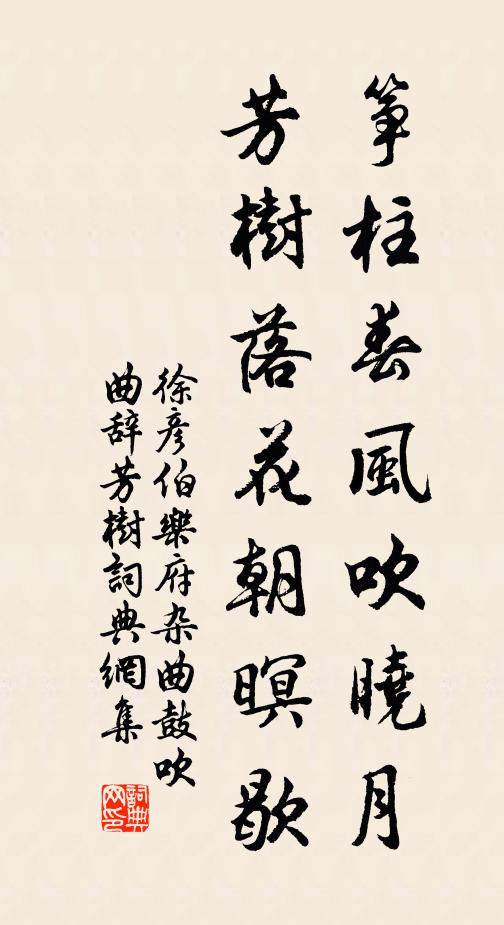 筝柱春風吹曉月
芳樹落花朝暝歇
徐彦伯樂府杂曲鼓吹
曲辞芳樹詞典網集
詞典
网印